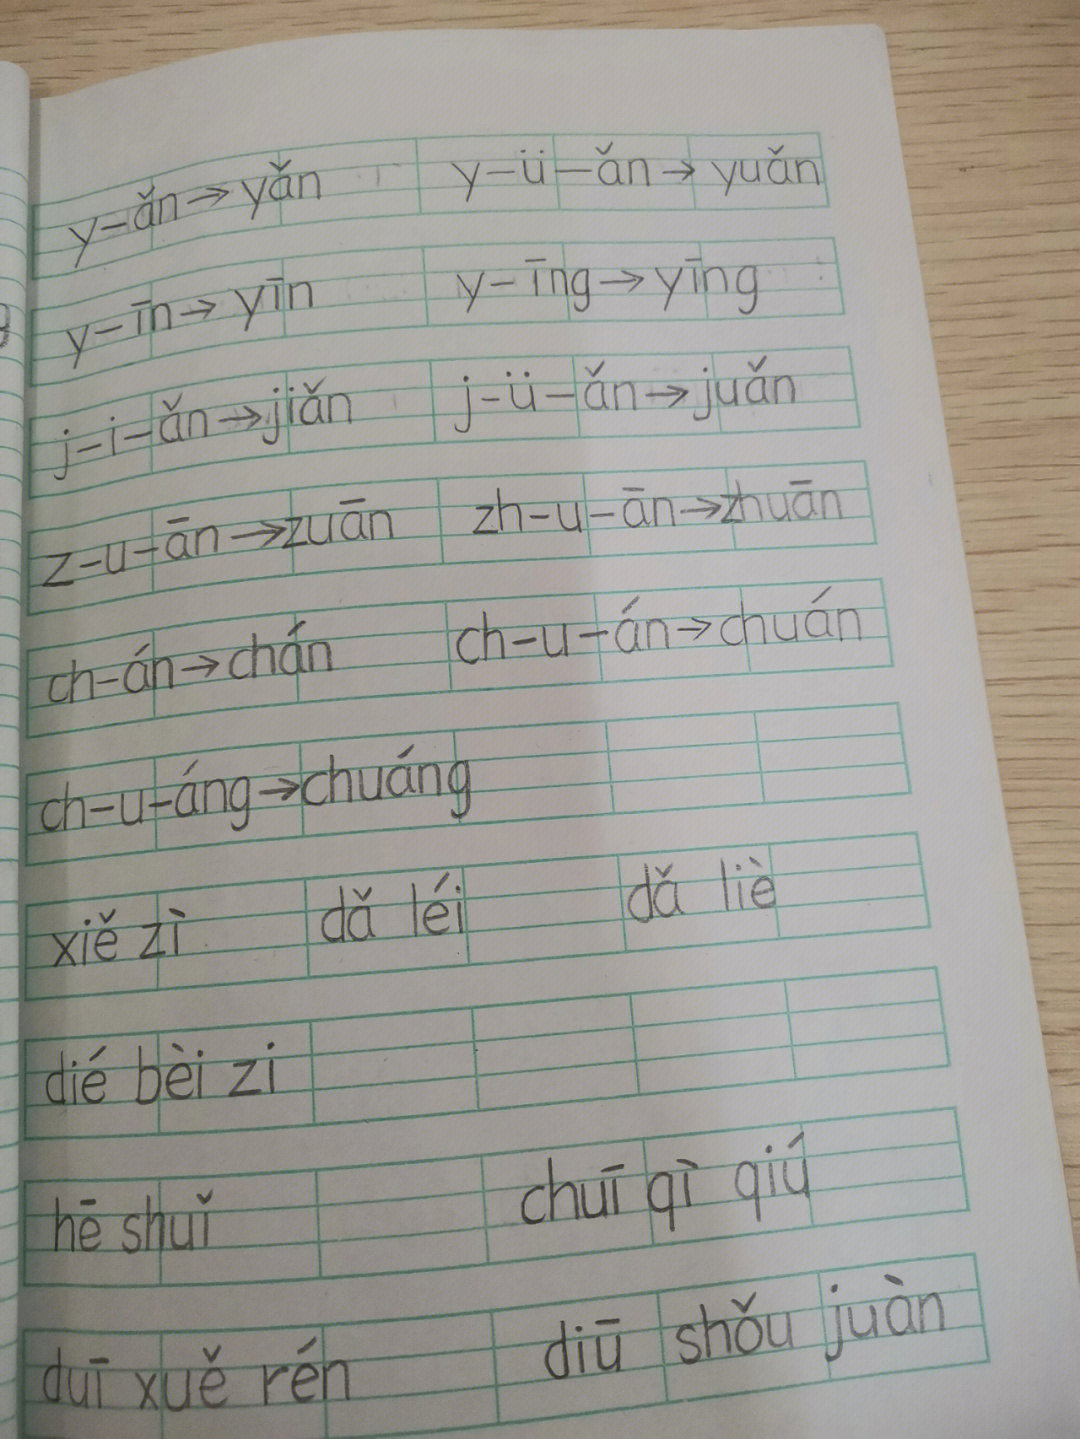 y-ǎn→yǎn y-ü-ǎn→yuǎn
y-īn→yīn y-īng→yīng
j-i-ǎn→jiǎn j-ü-ǎn→juǎn
z-u-ān→zuān zh-u-ān→zhuān
ch-án→chán ch-u-án→chuán
ch-u-áng→chuáng
xiě zì dǎ léi dǎ liè
dié bèi zi
hē shuǐ chuī qì qiú
duī xuě rén diū shǒu juàn